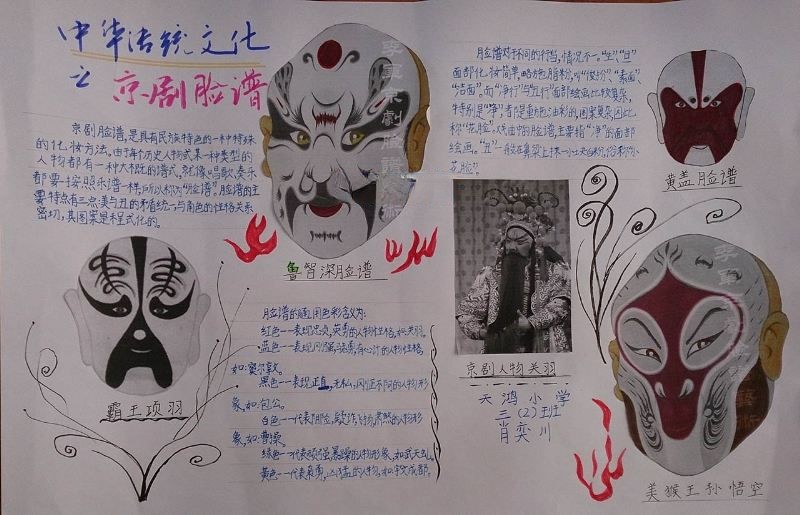 中华传统文化
之京剧脸谱
京剧脸谱,是具有民族特色的一种特殊
的化妆方法。由于每个历史人物或某一种类型的
人物都有一种大概的谱式,就像唱歌、奏乐
都要按照乐谱一样,所以称为"脸谱"。脸谱的主
要特点有三点:美与丑的矛盾统一、与角色的性格关系
密切,其图案是程式化的。
鲁智深脸谱
霸王项羽
脸谱的
用色彩含义为:
红色一一表现忠贞,英勇的人物性格,如:关羽。
蓝色一一表现刚强、骁勇、有心计的人物性格,
如:窦尔敦。
黑色一一表现正直,无私,刚正不阿的人物形
象,如:包公。
白色一一代表阴险,疑诈,飞扬,肃然的人物形
象,如:曹操。
绿色一一代表顽强,暴躁的人物形象,如:武天虬。
黄色一一代表枭勇,凶猛的人物,如:宇文成都。
脸谱对于不同的行当,情况不一。"生"、"旦"
面部化妆简单,略施脂粉,叫"俊扮"、"素面"、
"洁面"。而"净行"与"丑行"面部绘画比较复杂,
特别是"净",都是重施油彩的,图案复杂,因此
称"花脸"。戏曲中的脸谱,主要指"净"的面部
绘画。"丑",一般在鼻梁上抹一小块白粉,俗称"小
花脸"。
黄盖脸谱
京剧人物关羽
天鸿小学
三(2)班
肖奕川
美猴王孙悟空
李军京剧脸谱艺术